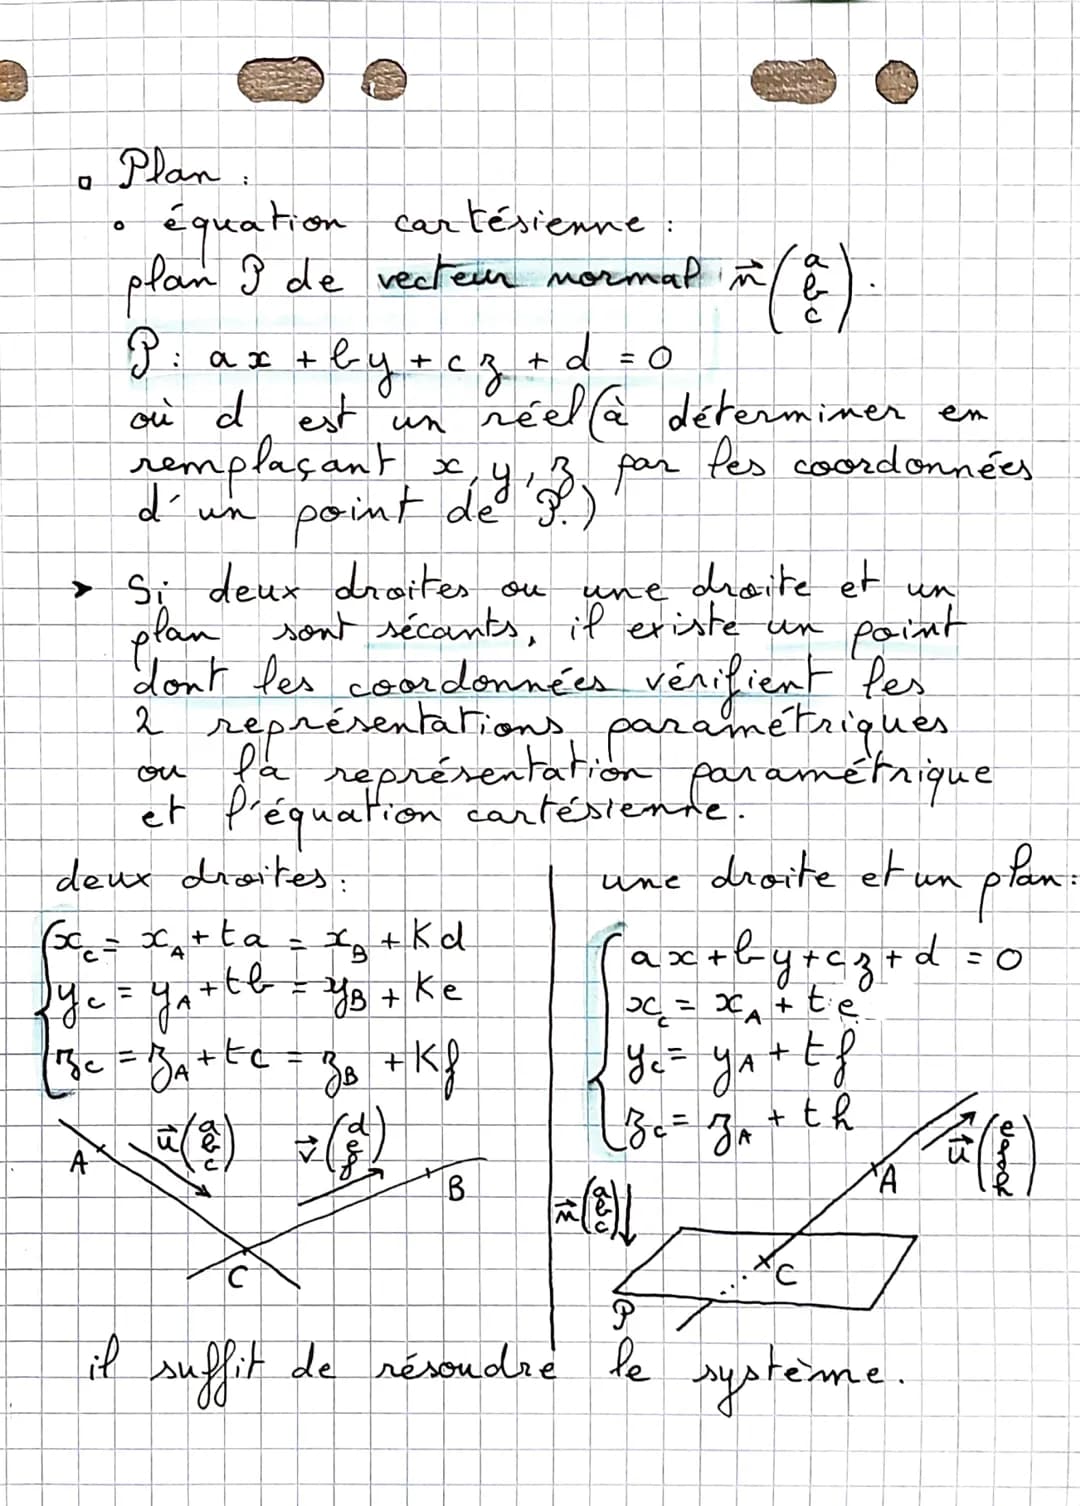 ▫ Plan :
• équation cartésienne :
plan P de vecteur normal n⃗ (a b c).
P : ax + by + cz + d = 0
où d est un réel (à déterminer en
remplaçant x, y, z par les coordonnées
d'un point de P.)
➤ Si deux droites ou une droite et un
plan sont sécants, il existe un point
dont les coordonnées vérifient les
2 représentations paramétriques
ou la représentation paramétrique
et l'équation cartésienne.
deux droites :
x_C = x_A + ta = x_B + Kd
y_C = y_A + tb = y_B + Ke
z_C = z_A + tc = z_B + Kf
A
u⃗ (a b c)
v⃗ (d e f)
B
C
une droite et un plan :
ax + by + cz + d = 0
x_C = x_A + te
y_C = y_A + tf
z_C = z_A + th
n⃗ (a b c)
u⃗ (e f h)
A
C
P
il suffit de résoudre le système.